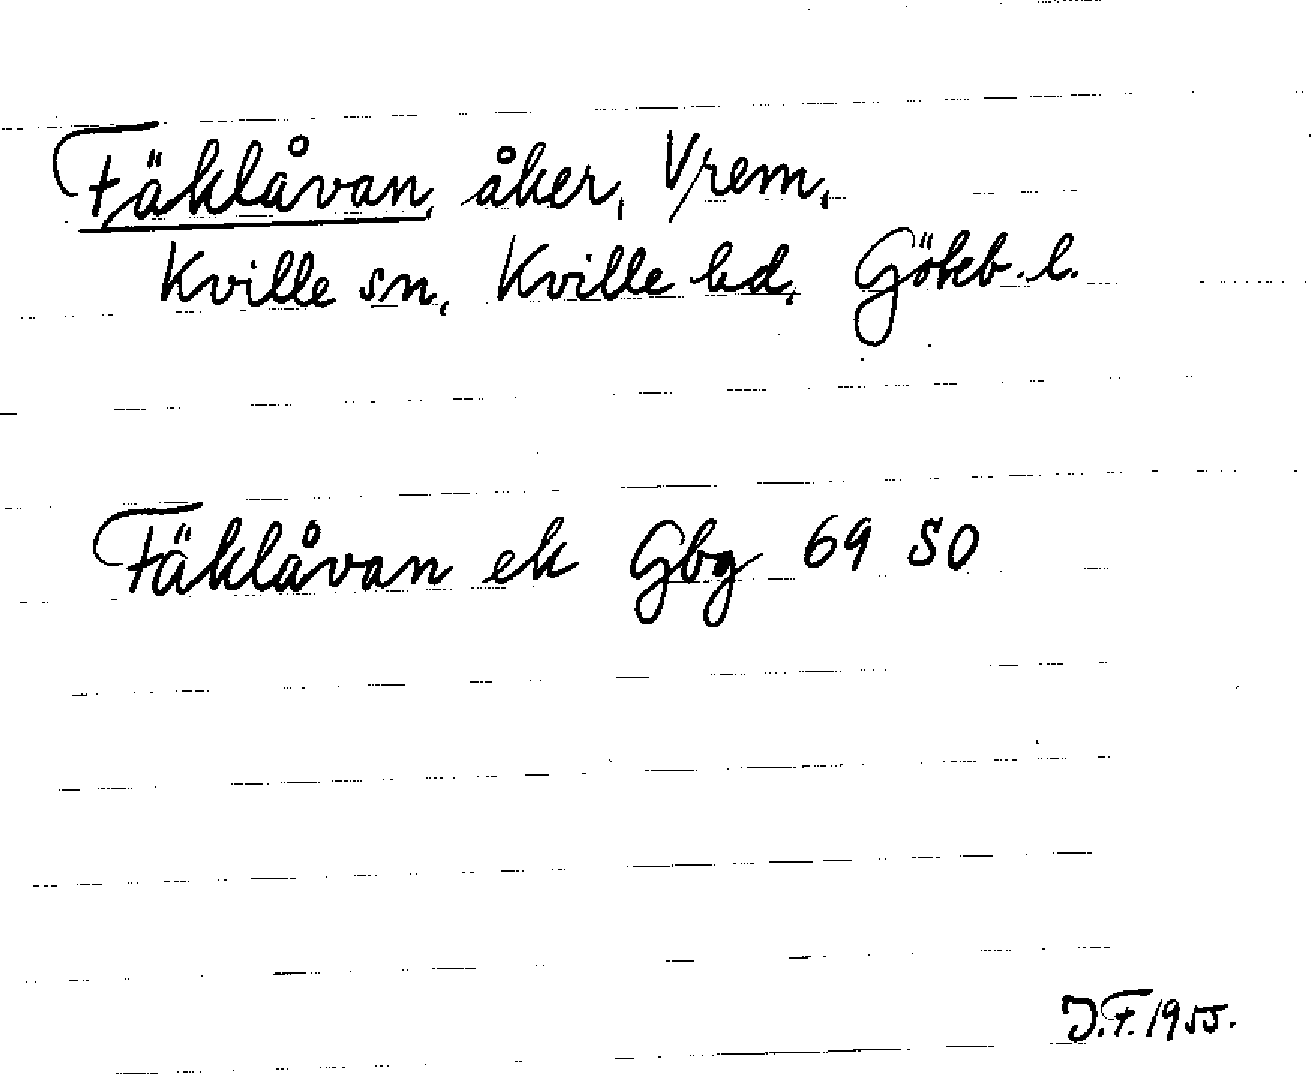 Fäklåvan, åker, Vrem,
Kville sn, Kville hd, Göteb. l.
Fäklåvan ek Gbg 69 SO
J.F. 1955.